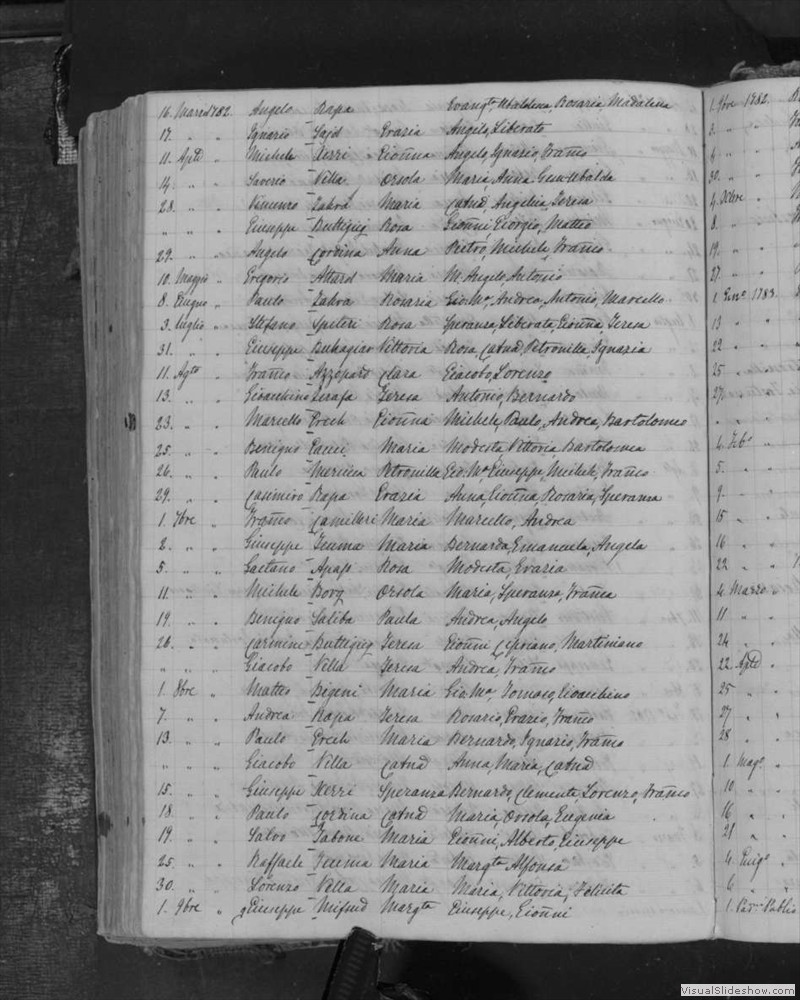 16. Marzo 1782. Angelo Rapa Evangta Ubaldesca, Rosaria Madalena
17. " " Ignazio Sajd Grazia Angelo, Liberato
11. Aple " Michele Xerri Gionna Angelo, Ignazio, Franco
14. " " Saverio Villa Orsola Maria, Anna, Ubalda
28. " " Vincenzo Zahra Maria Catnd, Angelica, Teresa
" " " Giuseppe Buttigieg Rosa Gionni Giorgio, Matteo
29. " " Angelo Cordina Anna Pietro, Michele, Franco
10. Maggio " Gregorio Attard Maria M. Angelo, Antonio
8. Giugno " Paulo Zahra Rosaria Gio. Ma, Andrea, Antonio, Marcello
3. Luglio " Stefano Spiteri Rosa Speranza, Liberata, Gionna, Teresa
31. " " Giuseppe Buhagiar Vittoria Rosa, Catnd, Petronilla, Ignazia
11. Agto " Franco Azzopard Clara Giacobo, Lorenzo
13. " " Gioacchino Zerafa Teresa Antonio, Bernardo
23. " " Marcello Grech Gionna Michele, Paulo, Andrea, Bartolomeo
25. " " Benigno Gauci Maria Modesta, Vittoria, Bartolomea
26. " " Paulo Mercieca Petronilla Gio. Ma, Giuseppe, Michele, Franco
29. " " Casimiro Rapa Grazia Anna, Gionna, Rosaria, Speranza
1. 7bre " Franco Camilleri Maria Marcello, Andrea
2. " " Giuseppe Zeuma Maria Bernarda, Emanuela, Angela
5. " " Gaetano Agap Rosa Modesta, Grazia
11. " " Michele Borg Orsola Maria, Speranza, Franca
19. " " Benigno Saliba Paula Andrea, Angelo
26. " " Carmine Buttigieg Teresa Gionni Cipriano, Martiniano
" " " Giacobo Villa Teresa Andrea, Franco
1. 8bre " Matteo Bigeni Maria Gio. Ma, Tomaso, Gioacchino
7. " " Andrea Rapa Teresa Rosario, Grazio, Franco
13. " " Paulo Grech Maria Bernardo, Ignazio, Franco
" " " Giacobo Villa Catnd Anna, Maria, Catnd
15. " " Giuseppe Xerri Speranza Bernardo, Clemente, Lorenzo, Franco
18. " " Paulo Cordina Catnd Maria, Orsola, Eugenia
19. " " Salvo Tabone Maria Gionni, Alberto, Giuseppe
25. " " Raffaele Zeuma Maria Margta Alfonsa
30. " " Lorenzo Vella Maria Maria, Vittoria, Felicita
1. 9bre " Giuseppe Mifsud Margta Giuseppe, Gionni
1. 9bre 1782.
3. " "
6. " "
30. " "
4. Xbre "
8. " "
19. " "
27. " "
1. Geno 1783.
13 " "
22 " "
25 " "
27 " "
" " "
4. Febo "
5. " "
9. " "
15 " "
16 " "
22 " "
4. Marzo "
11 " "
24 " "
22 Aple "
25 " "
27 " "
28 " "
1. Mago "
10 " "
16 " "
21 " "
4. Giugo "
6 " "
1. Publio
VisualSlideshow.com